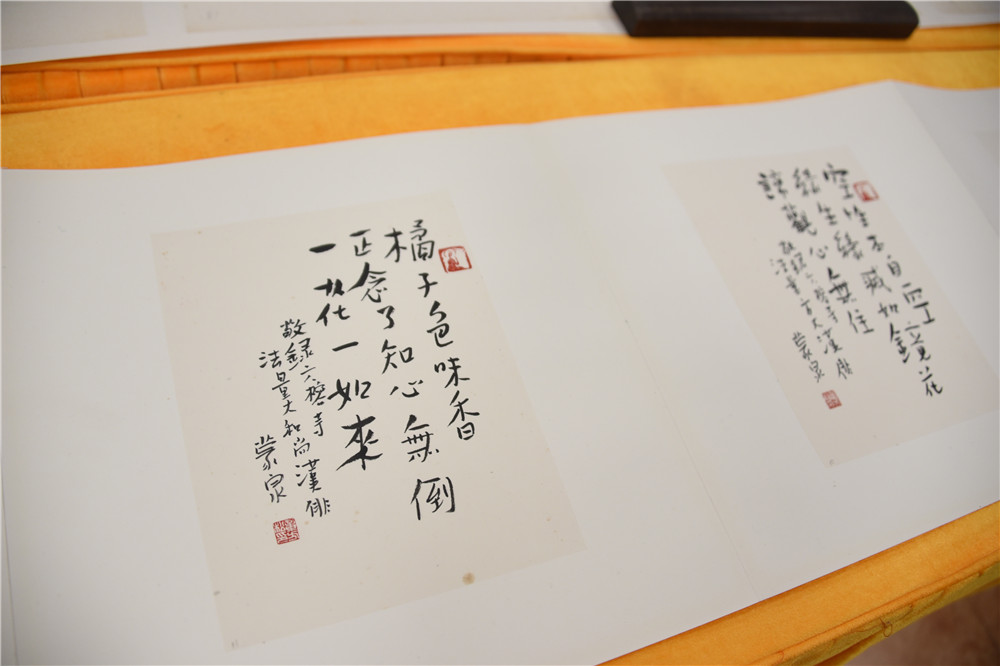 空性不自
緣生緣滅如鏡花
諦觀心無住
敬録六榕寺
法量方丈漢俳
蒙泉
橘子色味香
正念了知心無倒
一花一如來
敬録六榕寺
法量大和尚漢俳
蒙泉